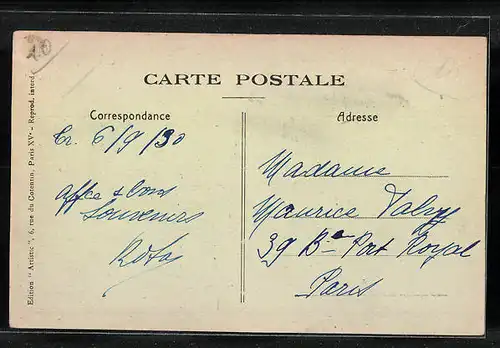 10
CARTE POSTALE
Correspondance
Adresse
6/9/30
affce & bons
souvenirs
Madame
Maurice
39 Bd Port Royal
Paris
Edition "Artistic", 6, rue du Cotentin, Paris XVe - Reprod. interd.